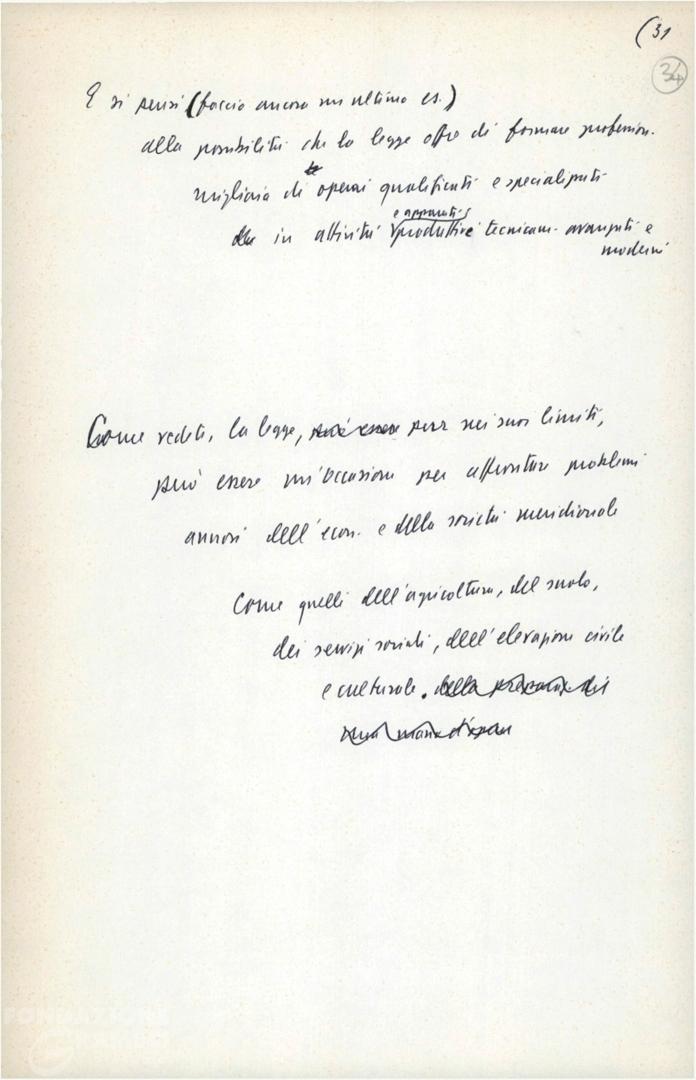 (31
34
E si pensi (faccio ancora un ultimo es.)
alla possibilità che la legge offre di formare profession.
migliaia di operai qualificati e specializzati
in attività e apparati produttivi tecnicam. avanzati e
moderni
Come vedete, la legge, pur nei suoi limiti,
può essere un'occasione per affrontare problemi
annosi dell'econ. e della società meridionale
come quelli dell'agricoltura, del suolo,
dei servizi sociali, dell'elevazione civile
e culturale.
FONDAZIONE